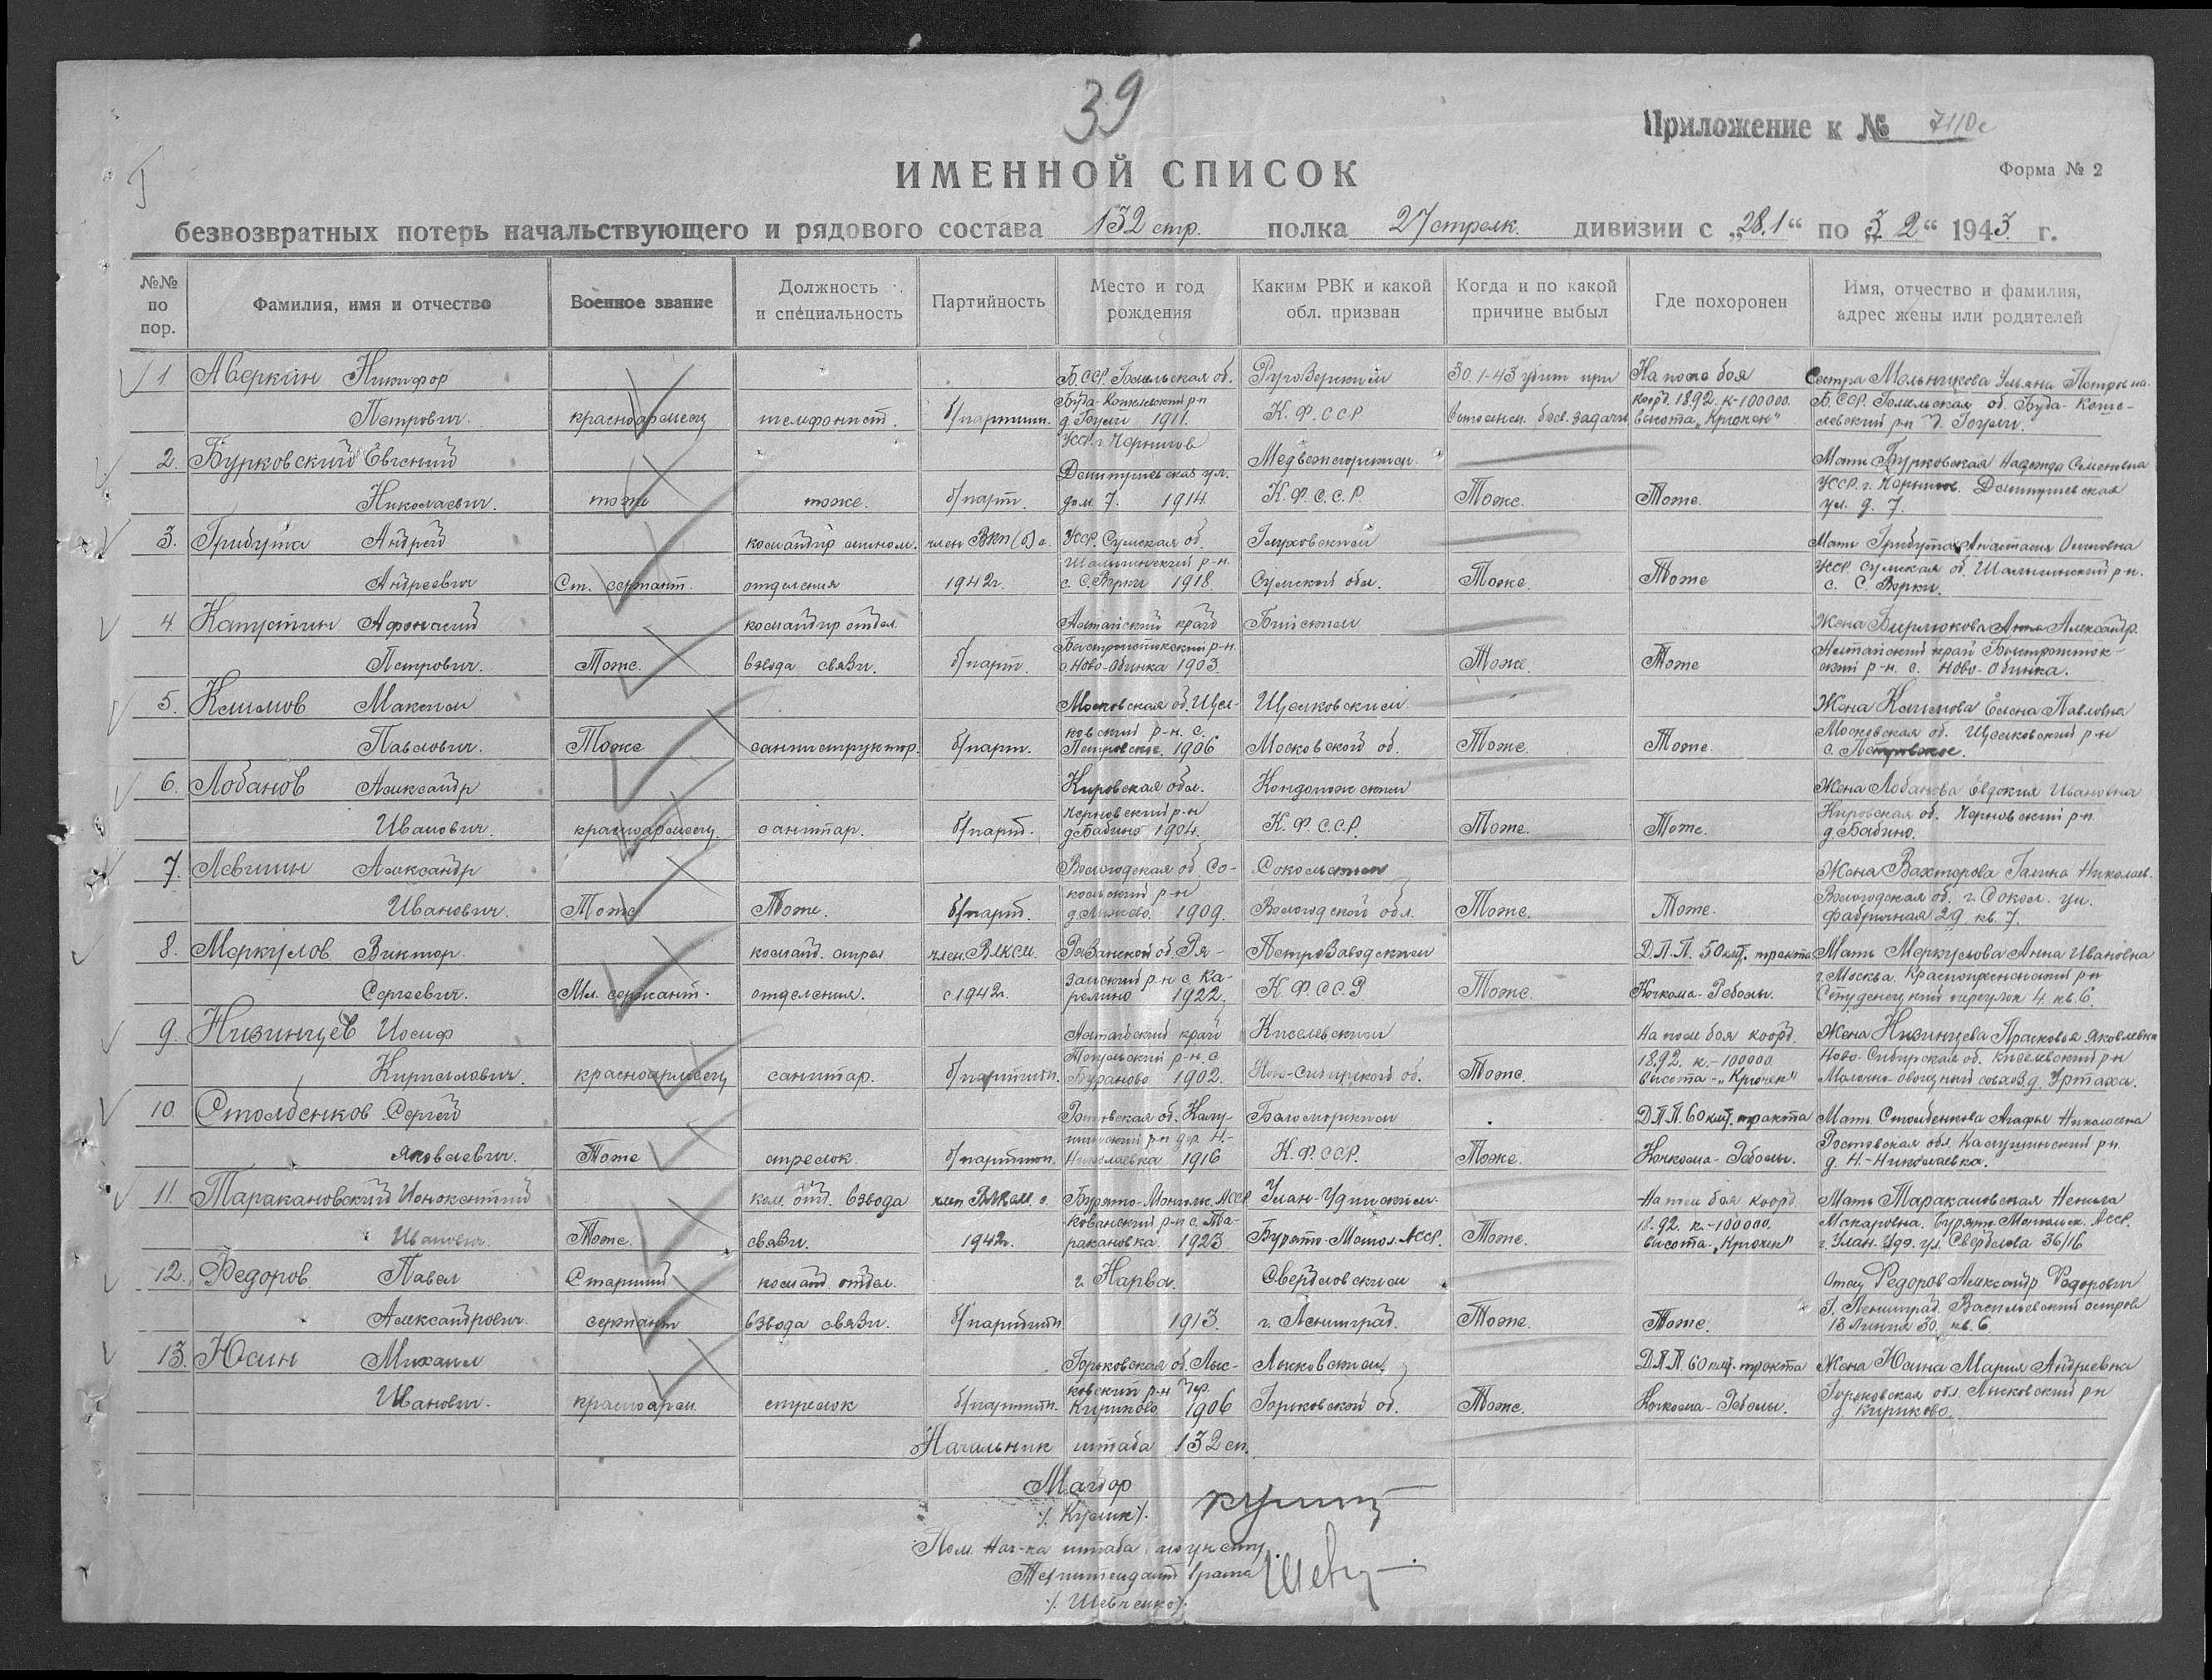 39
Приложение к № 7110с
ИМЕННОЙ СПИСОК
Форма № 2
безвозвратных потерь начальствующего и рядового состава 132 стр. полка 27 стрелк. дивизии с „28.1“ по „3 2“ 1943 г.
№№ по пор. Фамилия, имя и отчество Военное звание Должность и специальность Партийность Место и год рождения Каким РВК и какой обл. призван Когда и по какой причине выбыл Где похоронен Имя, отчество и фамилия, адрес жены или родителей
1. Аверкин Никифор Б.ССР. Гомельская об. Ругозерским 30.1-43 убит при На поле боя Сестра Мельникова Ульяна Петровна
Петрович. красноармеец телефонист. б/партийн. Буда-Кошелевский р-н 1911. К.Ф.ССР коорд. 1892. к-100000. высота „Крючек“ Б.ССР. Гомельская об. Буда-Коше-
левский р-н д.
2. Бурковский Евгений УССР. г. Чернигов Медвежегорским Мать Бурковская Надежда Семеновна
Николаевич. тоже тоже. б/парт. дом 7. 1914. К.Ф.С.С.Р. Тоже. Тоже. УССР. г. Чернигов.
ул. д. 7.
3. Грибута Андрей командир отделения член ВКП(б) с УССР. Сумская об. Глуховским Мать Грибута Анастасия
Андреевич Ст. сержант. 1942г. Шалыгинский р-н. 1918. Сумской обл. Тоже. Тоже УССР. Сумская об. Шалыгинский р-н.
4. Капустин Афонасий командир отдел. Алтайский край Бийским Жена Бирюкова Александр.
Петрович. Тоже. взвода связи. б/парт. Быстроистокский р-н. с. Ново-Обинка 1903. Тоже Тоже Алтайский край Быстроисток-
ский р-н. с. Ново-Обинка.
5. Климов Максим Московская об. Щел- Щелковским Жена Климова Елена Павловна
Павлович. Тоже санинструктор. б/парт. ковский р-н. с. Петровское. 1906 Московской об. Тоже. Тоже. Московская об. Щелковский р-н
с. Петровское.
6. Лобанов Александр Кировская обл. Кондопожским Жена Лобанова Евдокия Ивановна
Иванович. красноармеец. санитар. б/парт. Черновский р-н д. Бабино 1904. К.Ф.С.С.Р. Тоже. Тоже. Кировская об. Черновский р-н.
д. Бабино.
7. Левшин Александр Вологодская об. Со- Сокольским Жена Вахторова Галина Николаев.
Иванович. Тоже Тоже. б/парт. кольский р-н 1909. Вологодской обл. Тоже. Тоже. Вологодская об. г. Сокол. ул.
Фабричная 29 кв. 7.
8. Меркулов Виктор команд. стрел член ВЛКСМ. Рязанской об. Ря- Петрозаводским Д.П.П. 50 клт. тракта Мать Меркулова Анна Ивановна
Сергеевич. Мл. сержант. отделения. с 1942г. занский р-н с. Ка-релино 1922. К.Ф.ССР Тоже Кочкома-Реболы. г. Москва. Краснопресненский р-н
Студенецкий переулок 4 кв. 6.
9. Низинцев Иосиф Алтайский край Киселевским На поле боя коорд. Жена Низинцева Прасковья Яковлевна
Кириллович. красноармеец санитар. б/партийн. Бураново 1902. Ново-Сибирской об. Тоже. 1892. к.-100000 высота-„Крючек“ Ново-Сибирская об. Киселевский р-н
Молочно-овощный совхоз д. Уртаха.
10. Столбенков Сергей Ростовская об. Беломорским Д.П.П. 60 клт. тракта Мать Столбенкова Агафья Николаевна
Яковлевич. Тоже стрелок. б/партийн. Николаевка 1916 К.Ф.ССР. Тоже. Кочкома-Реболы. Ростовская обл.
д. Н.-Николаевка.
11. Таракановский Инокентий ком. отд. взвода член ВЛКСМ. с Бурято-Монгольск. АССР Улан-Удинским На поле боя коорд. Мать Таракановская Ненила
Иванович Тоже. связи. 1942г. Кабанский р-н с. Та-ракановка. 1923 Бурято-Монгол. АССР. Тоже. 18.92. к.-100000. высота-„Крючек“ Макаровна. Бурято-Монгольск. АССР.
г. Улан-Удэ. ул. Свердлова 36/16
12. Федоров Павел Старший команд. отдел. г. Нарва. Свердловским Отец Федоров Александр Федорович
Александрович. сержант взвода связи. б/партийн 1913. г. Ленинград. Тоже. Тоже. Г. Ленинград. Васильевский остров
13 Линия 30. кв. 6.
13. Юсин Михаил Горьковская об. Лыс- Лысковским Д.П.П. 60 клт. тракта Жена Юсина Мария Андреевна
Иванович. красноарм. стрелок б/партийн. ковский р-н дер. Кириково 1906 Горьковской об. Тоже. Кочкома-Реболы. Горьковская обл. Лысковский р-н
д. Кириково.
Начальник штаба 132 сп.
Майор
/. Кулик/.
Пом. Нач-ка штаба по учету
Техинтендант 1 ранга
/. Шевченко/.